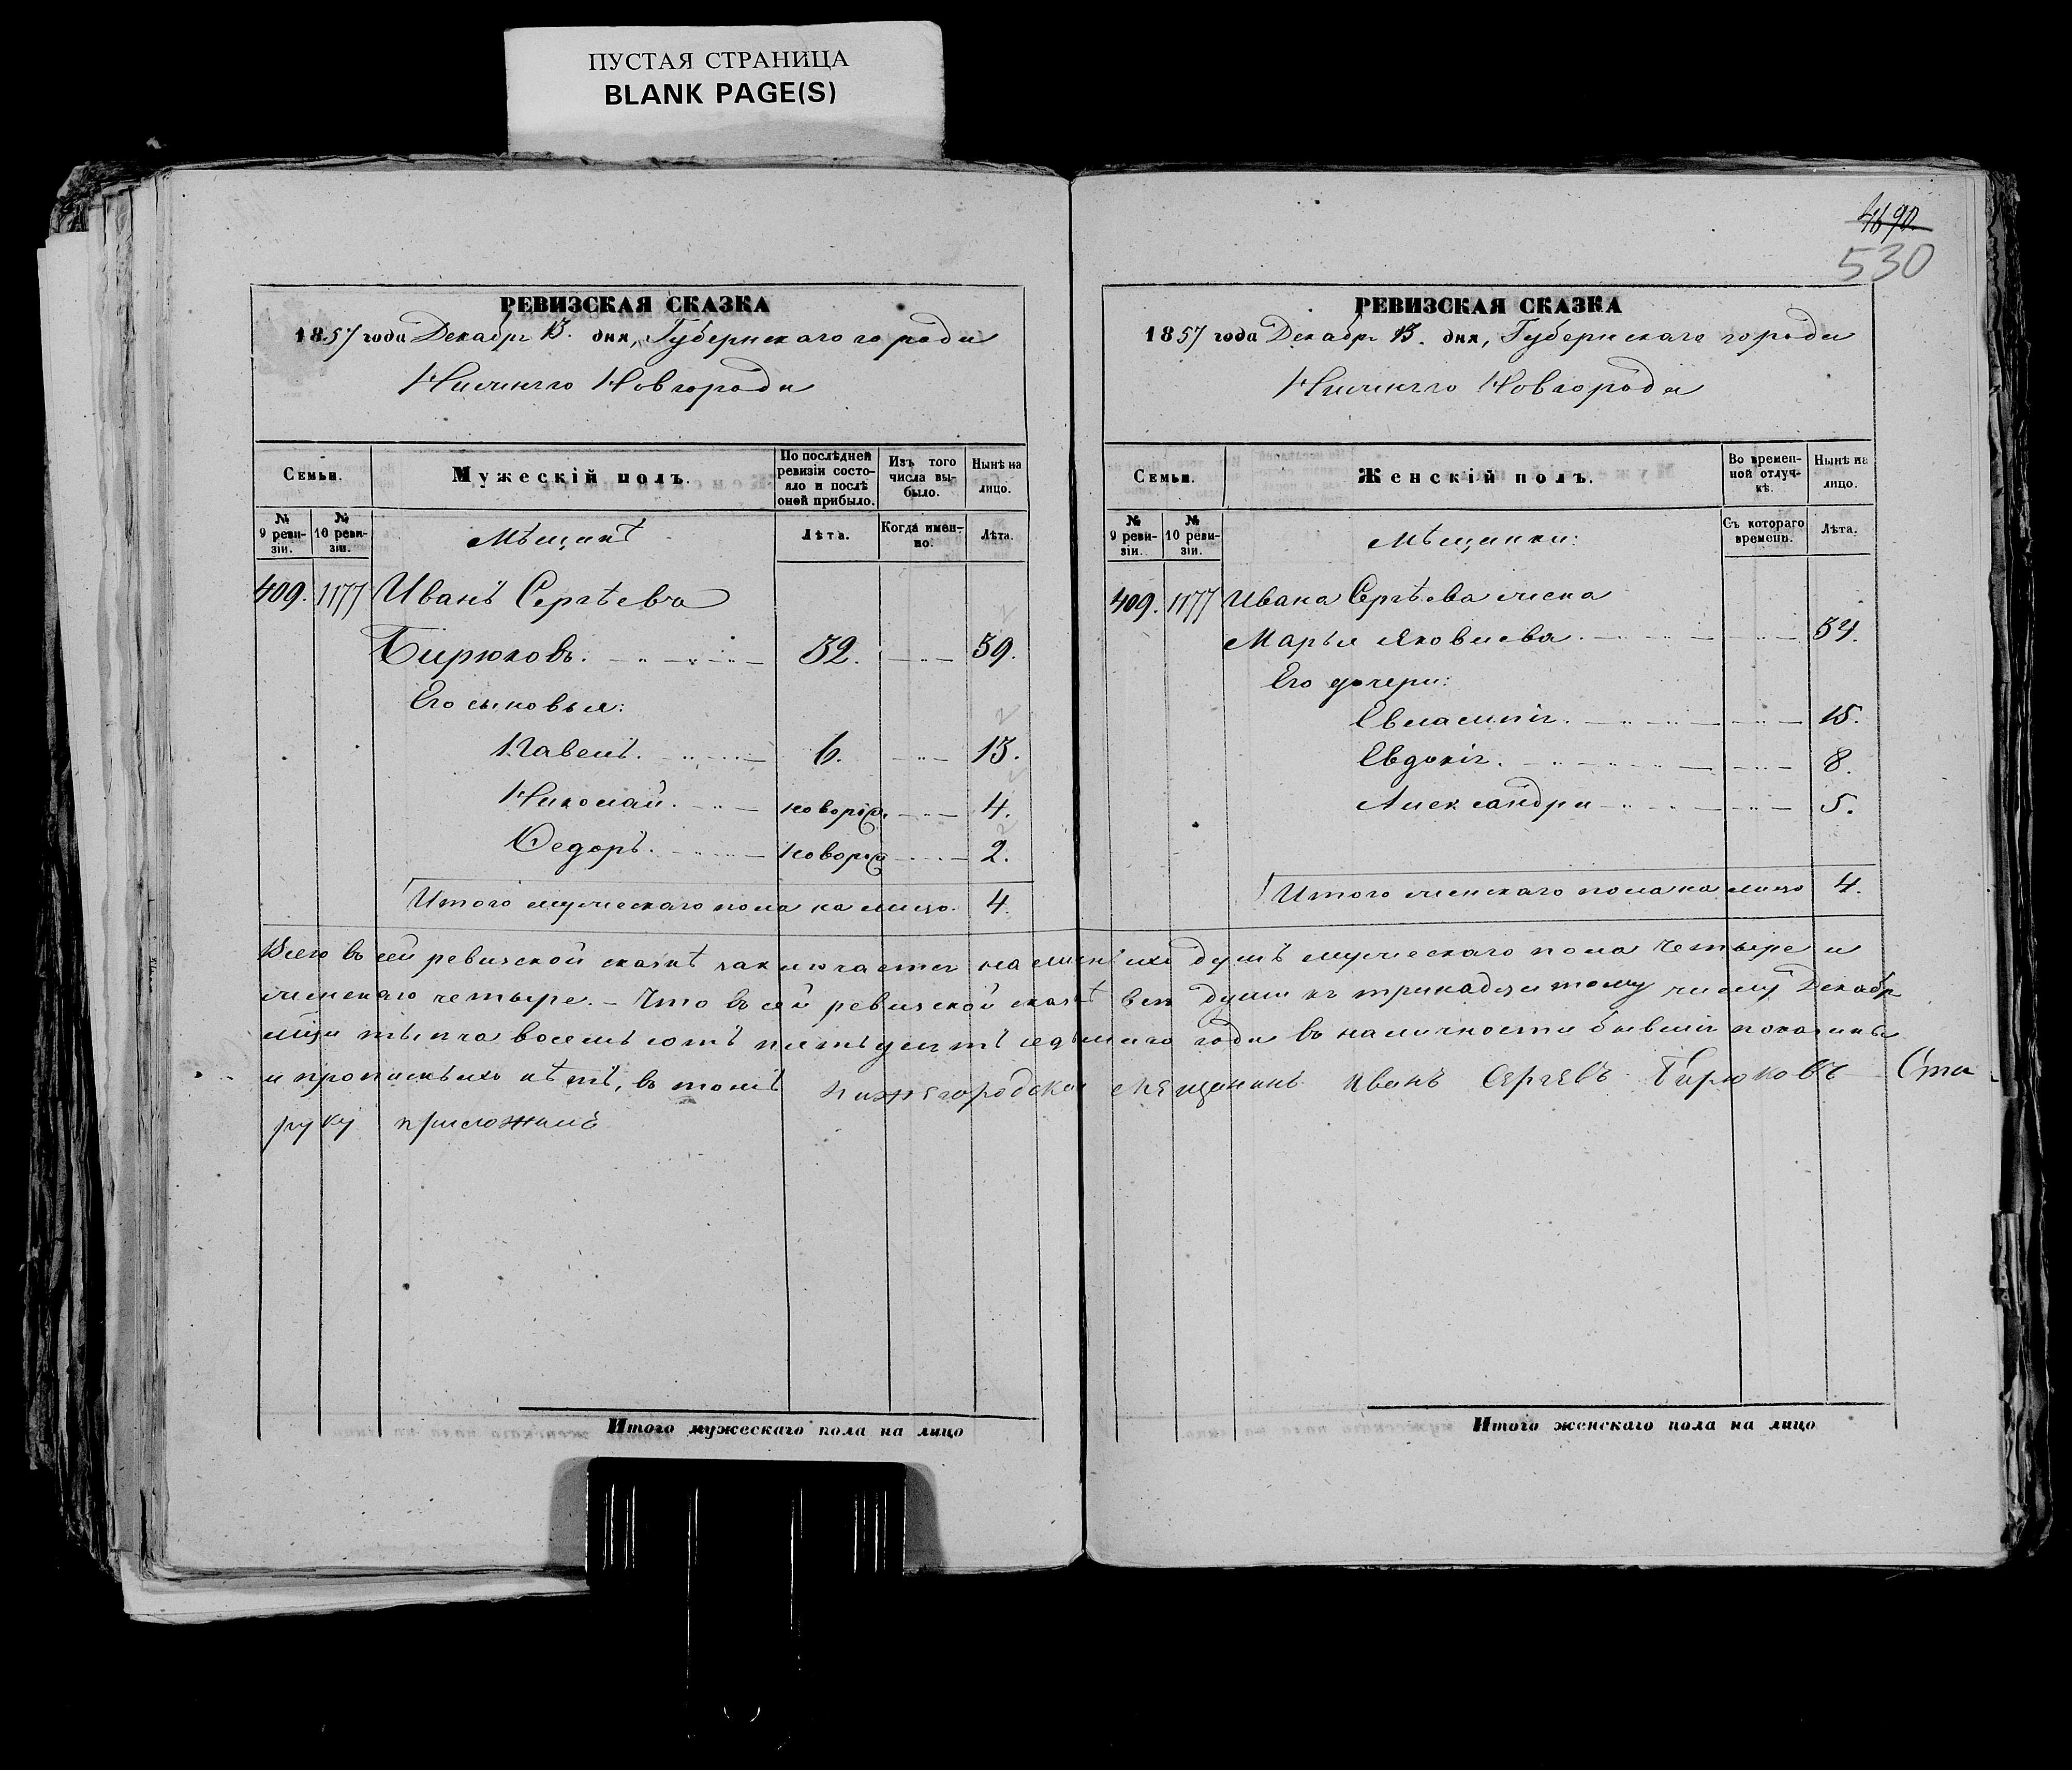 ПУСТАЯ СТРАНИЦА
BLANK PAGE(S)
РЕВИЗСКАЯ СКАЗКА
1857 года Декабря 13. дня, Губернскаго города
Нижняго Новгорода
Семьи.
Мужескій полъ.
По послѣдней ревизіи состояло и послѣ оной прибыло.
Изъ того числа выбыло.
Нынѣ на лицо.
№ 9 ревизіи.
№ 10 ревизіи.
Мѣщанѣ
Лѣта.
Когда именно.
Лѣта.
409. 1177 Иванъ Сергѣевъ
Бирюковъ. 52. 59.
Его сыновья:
Павелъ. 6. 13.
Николай. новорож. 4.
Федоръ. новорож 2.
Итого мужескаго пола на лицо. 4.
4690.
530
РЕВИЗСКАЯ СКАЗКА
1857 года Декабря 13. дня, Губернскаго города
Нижняго Новгорода
Семьи.
Женскій полъ.
Во временной отлучкѣ.
Нынѣ на лицо.
№ 9 ревизіи.
№ 10 ревизіи.
Мѣщанки:
Съ котораго времени.
Лѣта.
409. 1177 Ивана Сергѣева жена
Марья Яковлева. 54.
Его дочери:
15.
Евдокія. 8.
Александра 5.
Итого женскаго пола на лицо 4.
Всего въ сей ревизской сказкѣ заключается наличныхъ душъ мужескаго пола четыре и
женскаго четыре. – Что въ сей ревизской сказкѣ все души къ тринадцатому числу Декабря
мѣсяца тысяча восемь сотъ пятьдесятъ седьмаго года въ наличности бывшія показаны
и прописныхъ нѣтъ, въ томъ нижегородской мещенинъ Иванъ Сергѣевъ Бирюковъ
руку приложилъ
Итого мужескаго пола на лицо
Итого женскаго пола на лицо